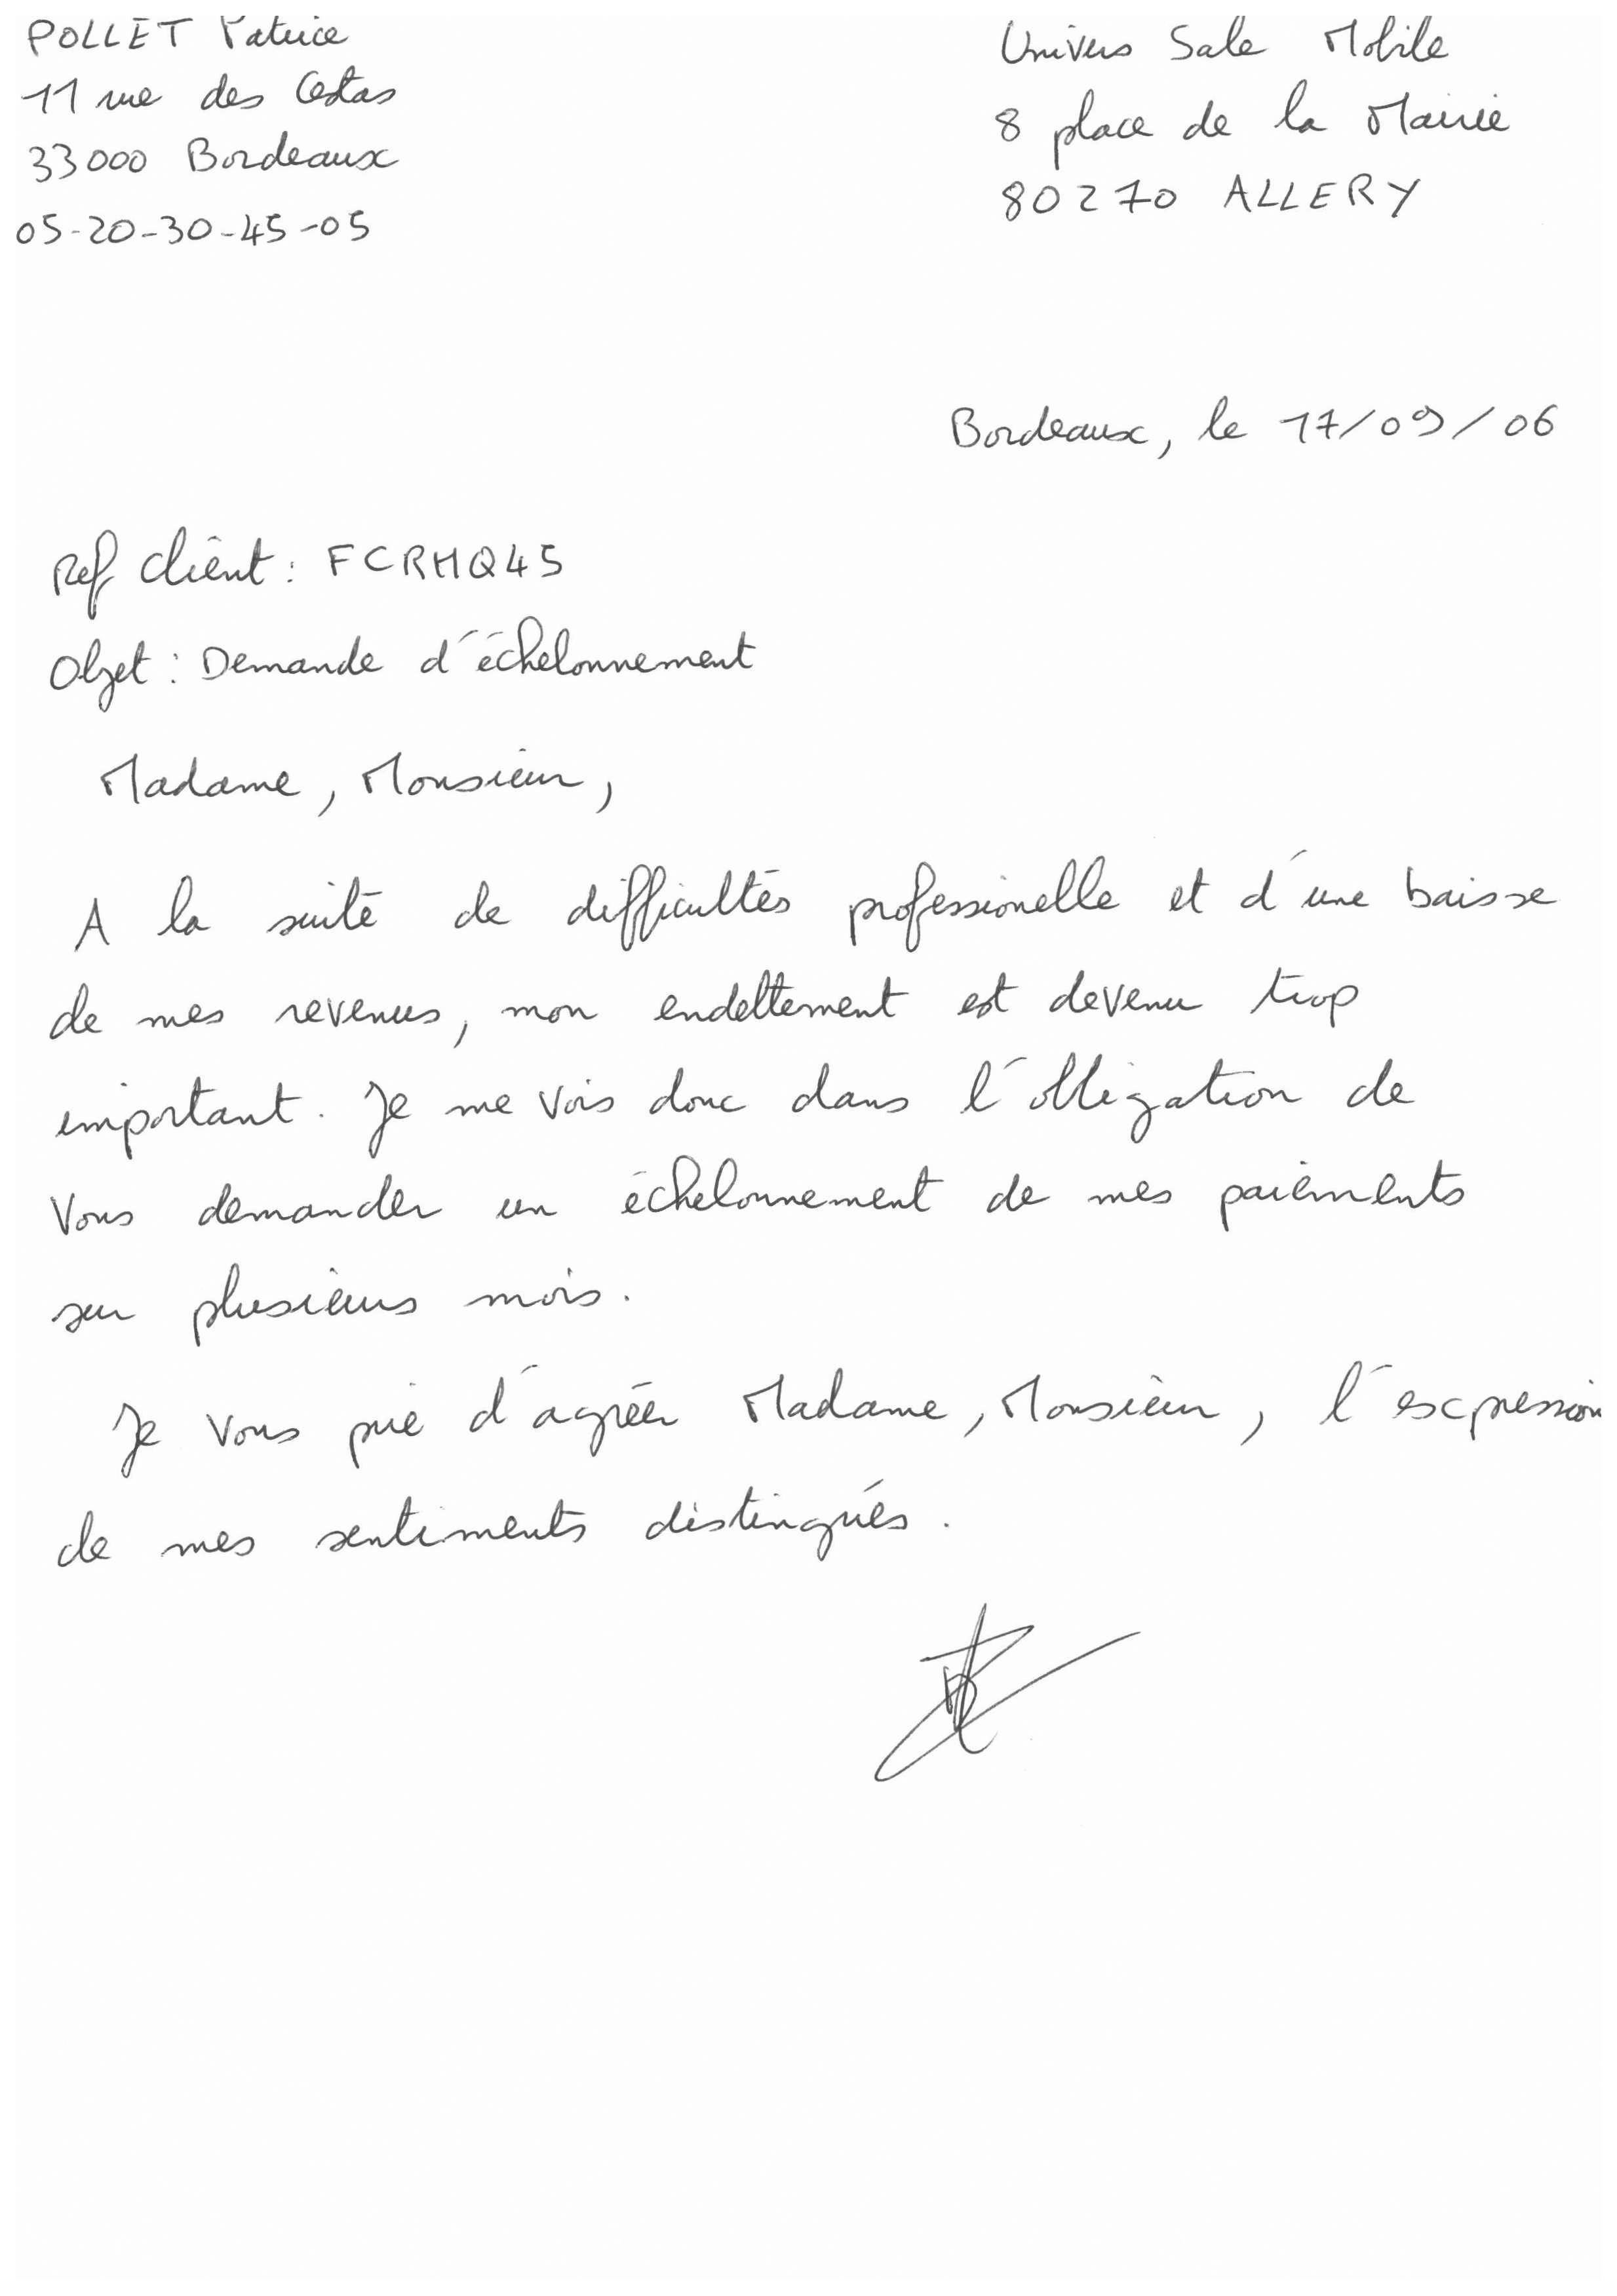 POLLET Patrice
11 rue des Cestas
33000 Bordeaux
05-20-30-45-05
Univers Sale Mobile
8 place de la Mairie
80270 ALLERY
Bordeaux, le 17/09/06
Ref client : FCRMQ45
Objet : Demande d'échelonnement
Madame, Monsieur,
A la suite de difficultés professionelle et d'une baisse
de mes revenus, mon endettement est devenu trop
important. Je me vois donc dans l'obligation de
vous demander un échelonnement de mes paiements
sur plusieurs mois.
Je vous prie d'agréer Madame, Monsieur, l'expression
de mes sentiments distingués.